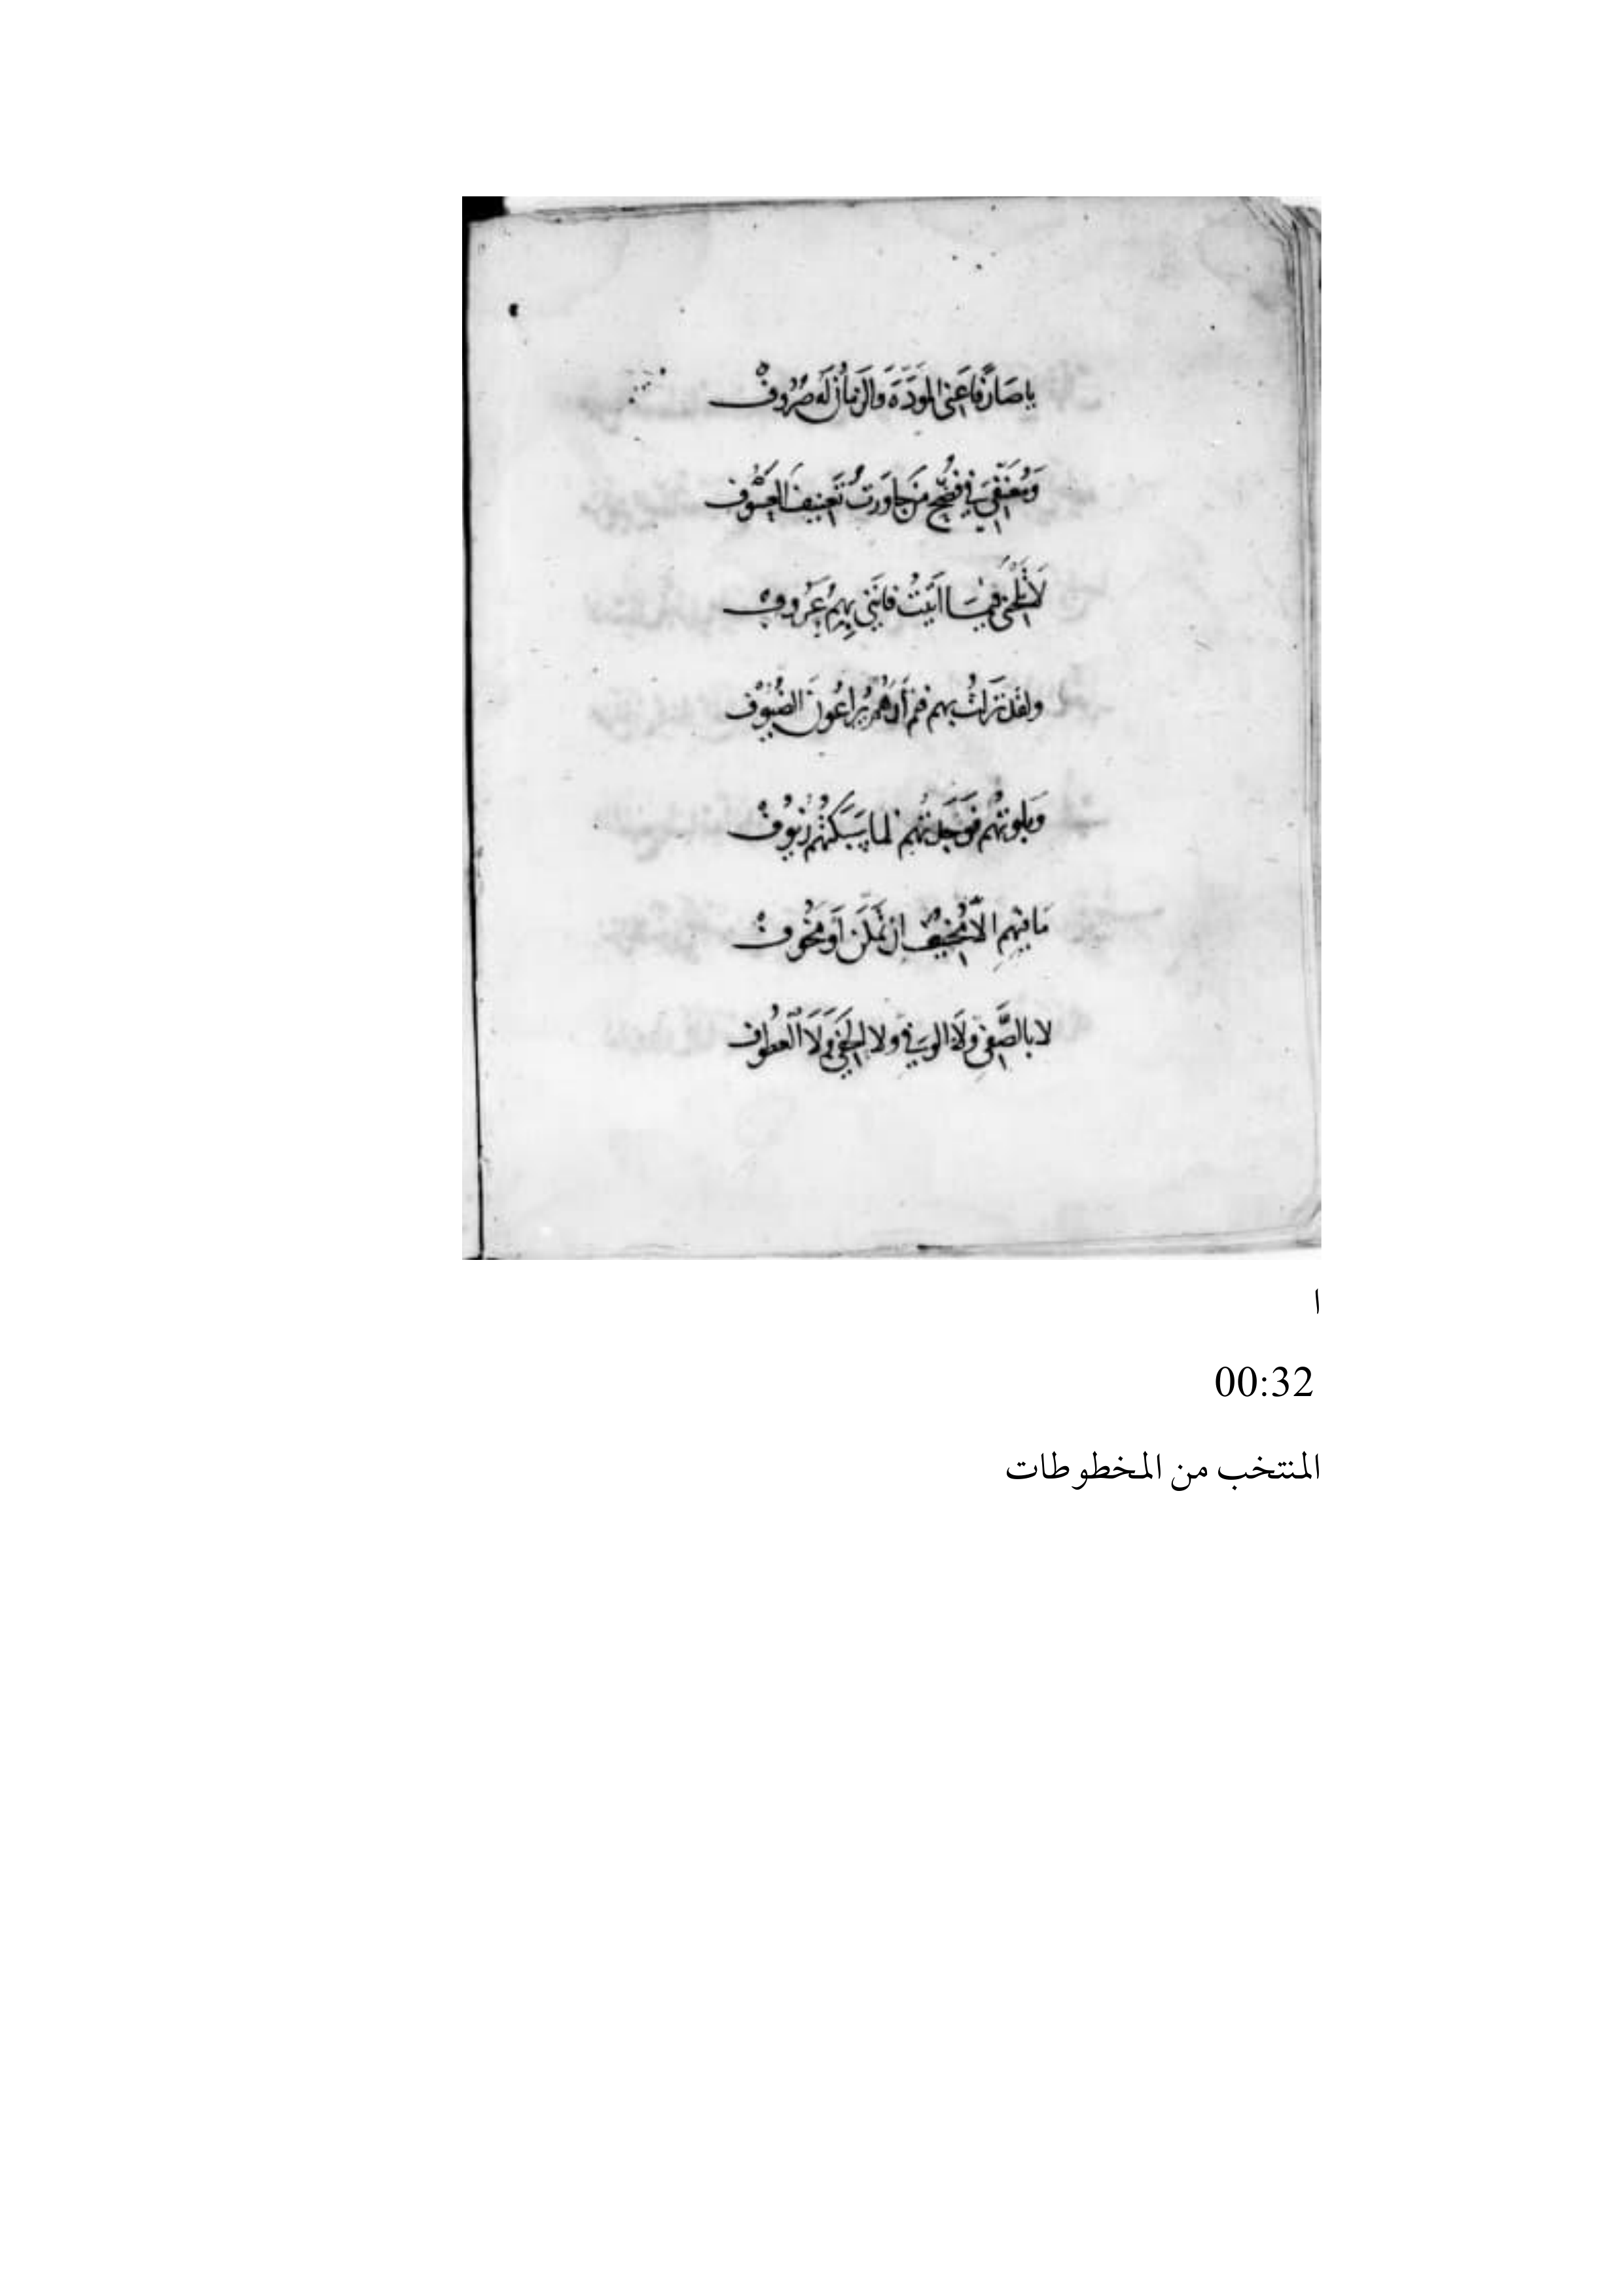 يا صَارِفًا عَنِّى المَودَّةَ وَالزمَانُ لَهُ صُرُوفْ
وَمُعَنِّفِي في فضْحِ مَن جاوَرتُ تَعنِيفَ العَسُوفْ
لَا تَلْحَنِي فِيمَا أتَيتُ فإنَّنِى بِهِمُ عَرُوفْ
ولقد نَزلتُ بهم فلم أرَهُمْ يُرَاعُونَ الضُّيُوفْ
وَبلوتُهُم فَوَجَدتُهُم لما سَبَكتُهُم زُيُوفْ
مَا فِيهِمِ إلّا مُخِيفٌ إن تَمَكَّنَ أو مَخُوفْ
لا بالصَّفِيِّ وَلَا الوَفِيِّ ولا الحَفِيِّ وَلَا العَطُوفْ
ا
00:32
المنتخب من المخطوطات